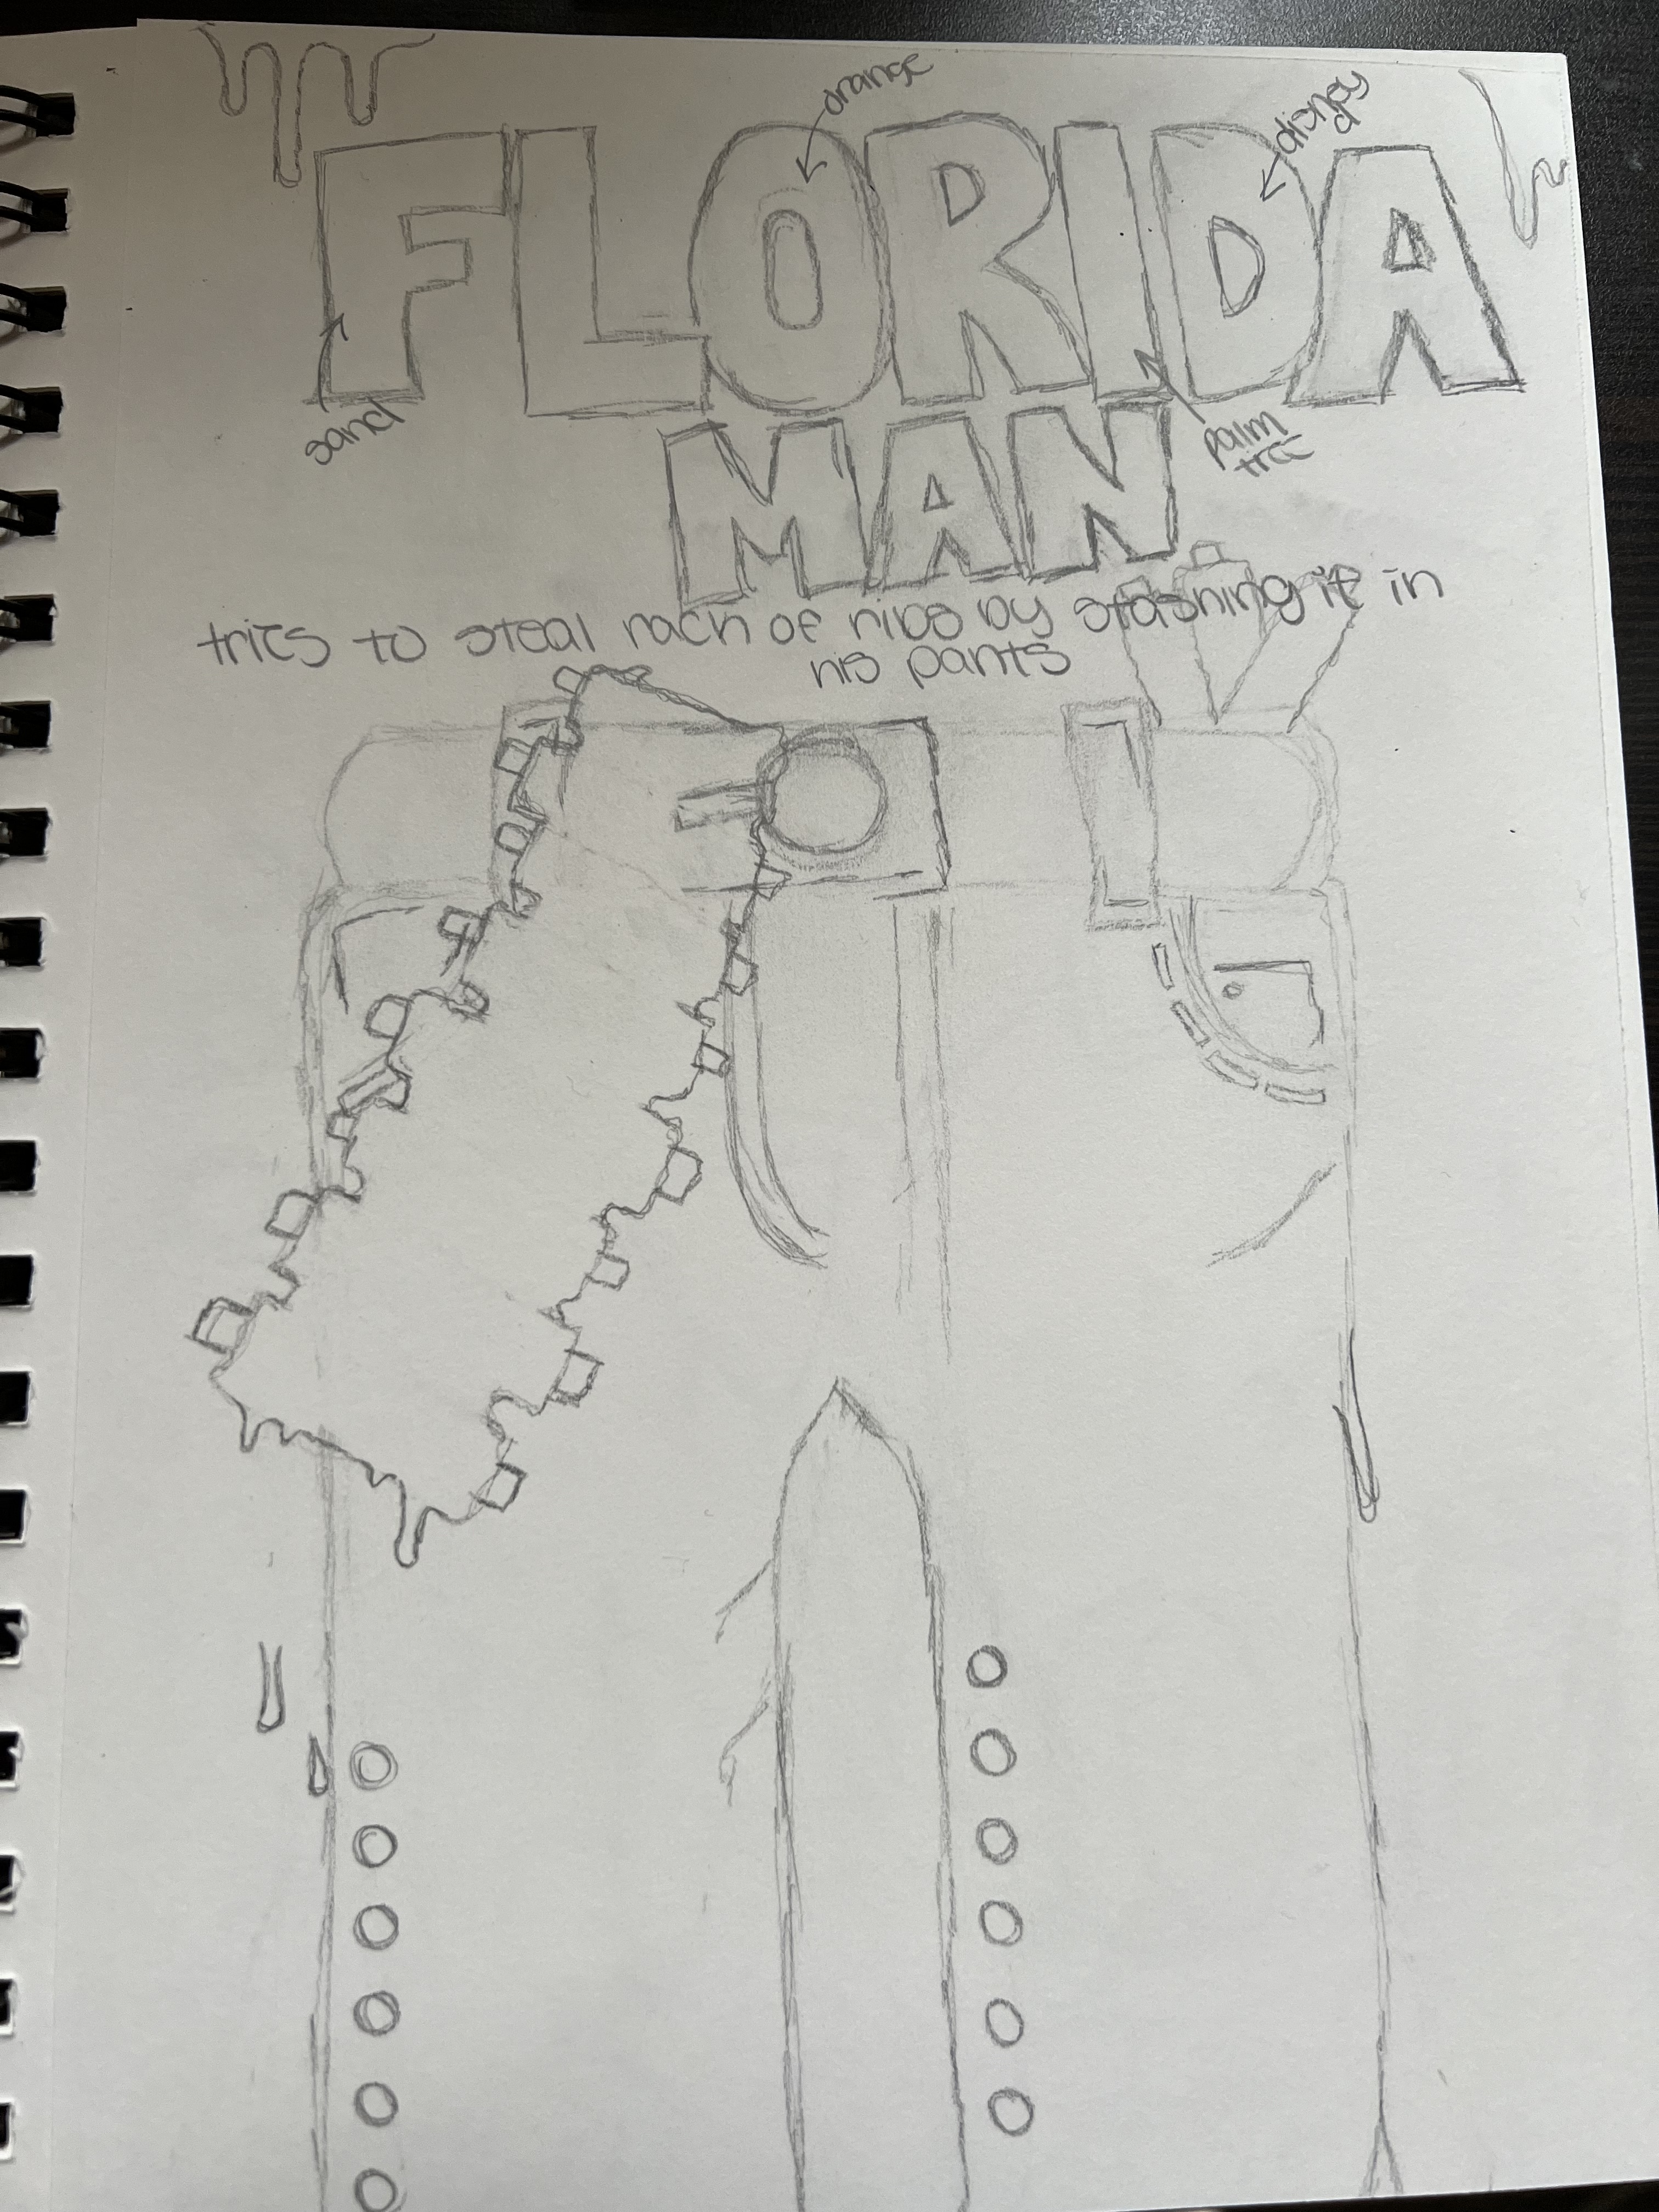 orange
disney
FLORIDA
sand
palm
tree
MAN
tries to steal rack of ribs by stashing it in
his pants